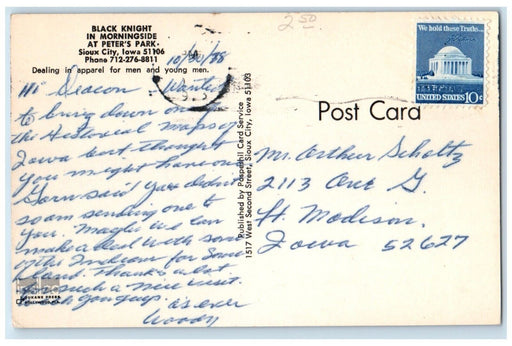 BLACK KNIGHT
IN MORNINGSIDE
AT PETER'S PARK
Sioux City, Iowa 51106
Phone 712-276-8811
Dealing in apparel for men and young men.
2.50
We hold these Truths...
UNITED STATES 10c
Post Card
Published by Pospeshil Card Service
1517 West Second Street, Sioux City, Iowa 51103
Hi Deacon Wanted
to bring down one of
the Historical maps of
Iowa but thought
you might have one
said you didn't
so am sending one to
you. Maybe we can
make a deal with some
of the Indians for some
land. Thanks a lot
for such a nice visit
with you guys.
as ever
Woody
Mr. Arthur Scholtz
2113 Ave G.
Ft. Madison,
Iowa 52627